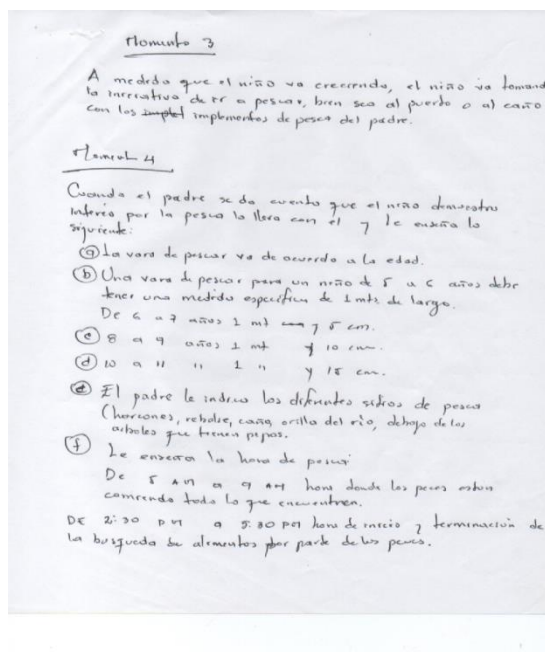 Momento 3
A medida que el niño va creciendo, el niño va tomand
la iniciativa de ir a pescar, bien sea al puerto o al caño
con los implet implementos de pesca del padre.
Moment 4
Cuando el padre se da cuenta que el niño demuestra
interes por la pesca lo lleva con el y le enseña lo
siguiente:
a La vara de pescar va de acuerdo a la edad.
b Una vara de pescar para un niño de 5 a 6 años debe
tener una medida especifica de 1 mts de largo.
De 6 a 7 años 1 mt y 5 cm.
c 8 a 9 años 1 mt y 10 cm.
d 10 a 11 " 1 " y 15 cm.
e El padre le indica los diferentes sitios de pesca
(horcones, rebalse, caño, orilla del río, debajo de los
arboles que tienen pepas.
f Le enseña la hora de pescar
De 5 AM a 9 AM hora donde los peces estan
comiendo todo lo que encuentren.
DE 2:30 PM a 5:30 PM hora de inicio y terminación de
la busqueda de alimentos por parte de los peces.